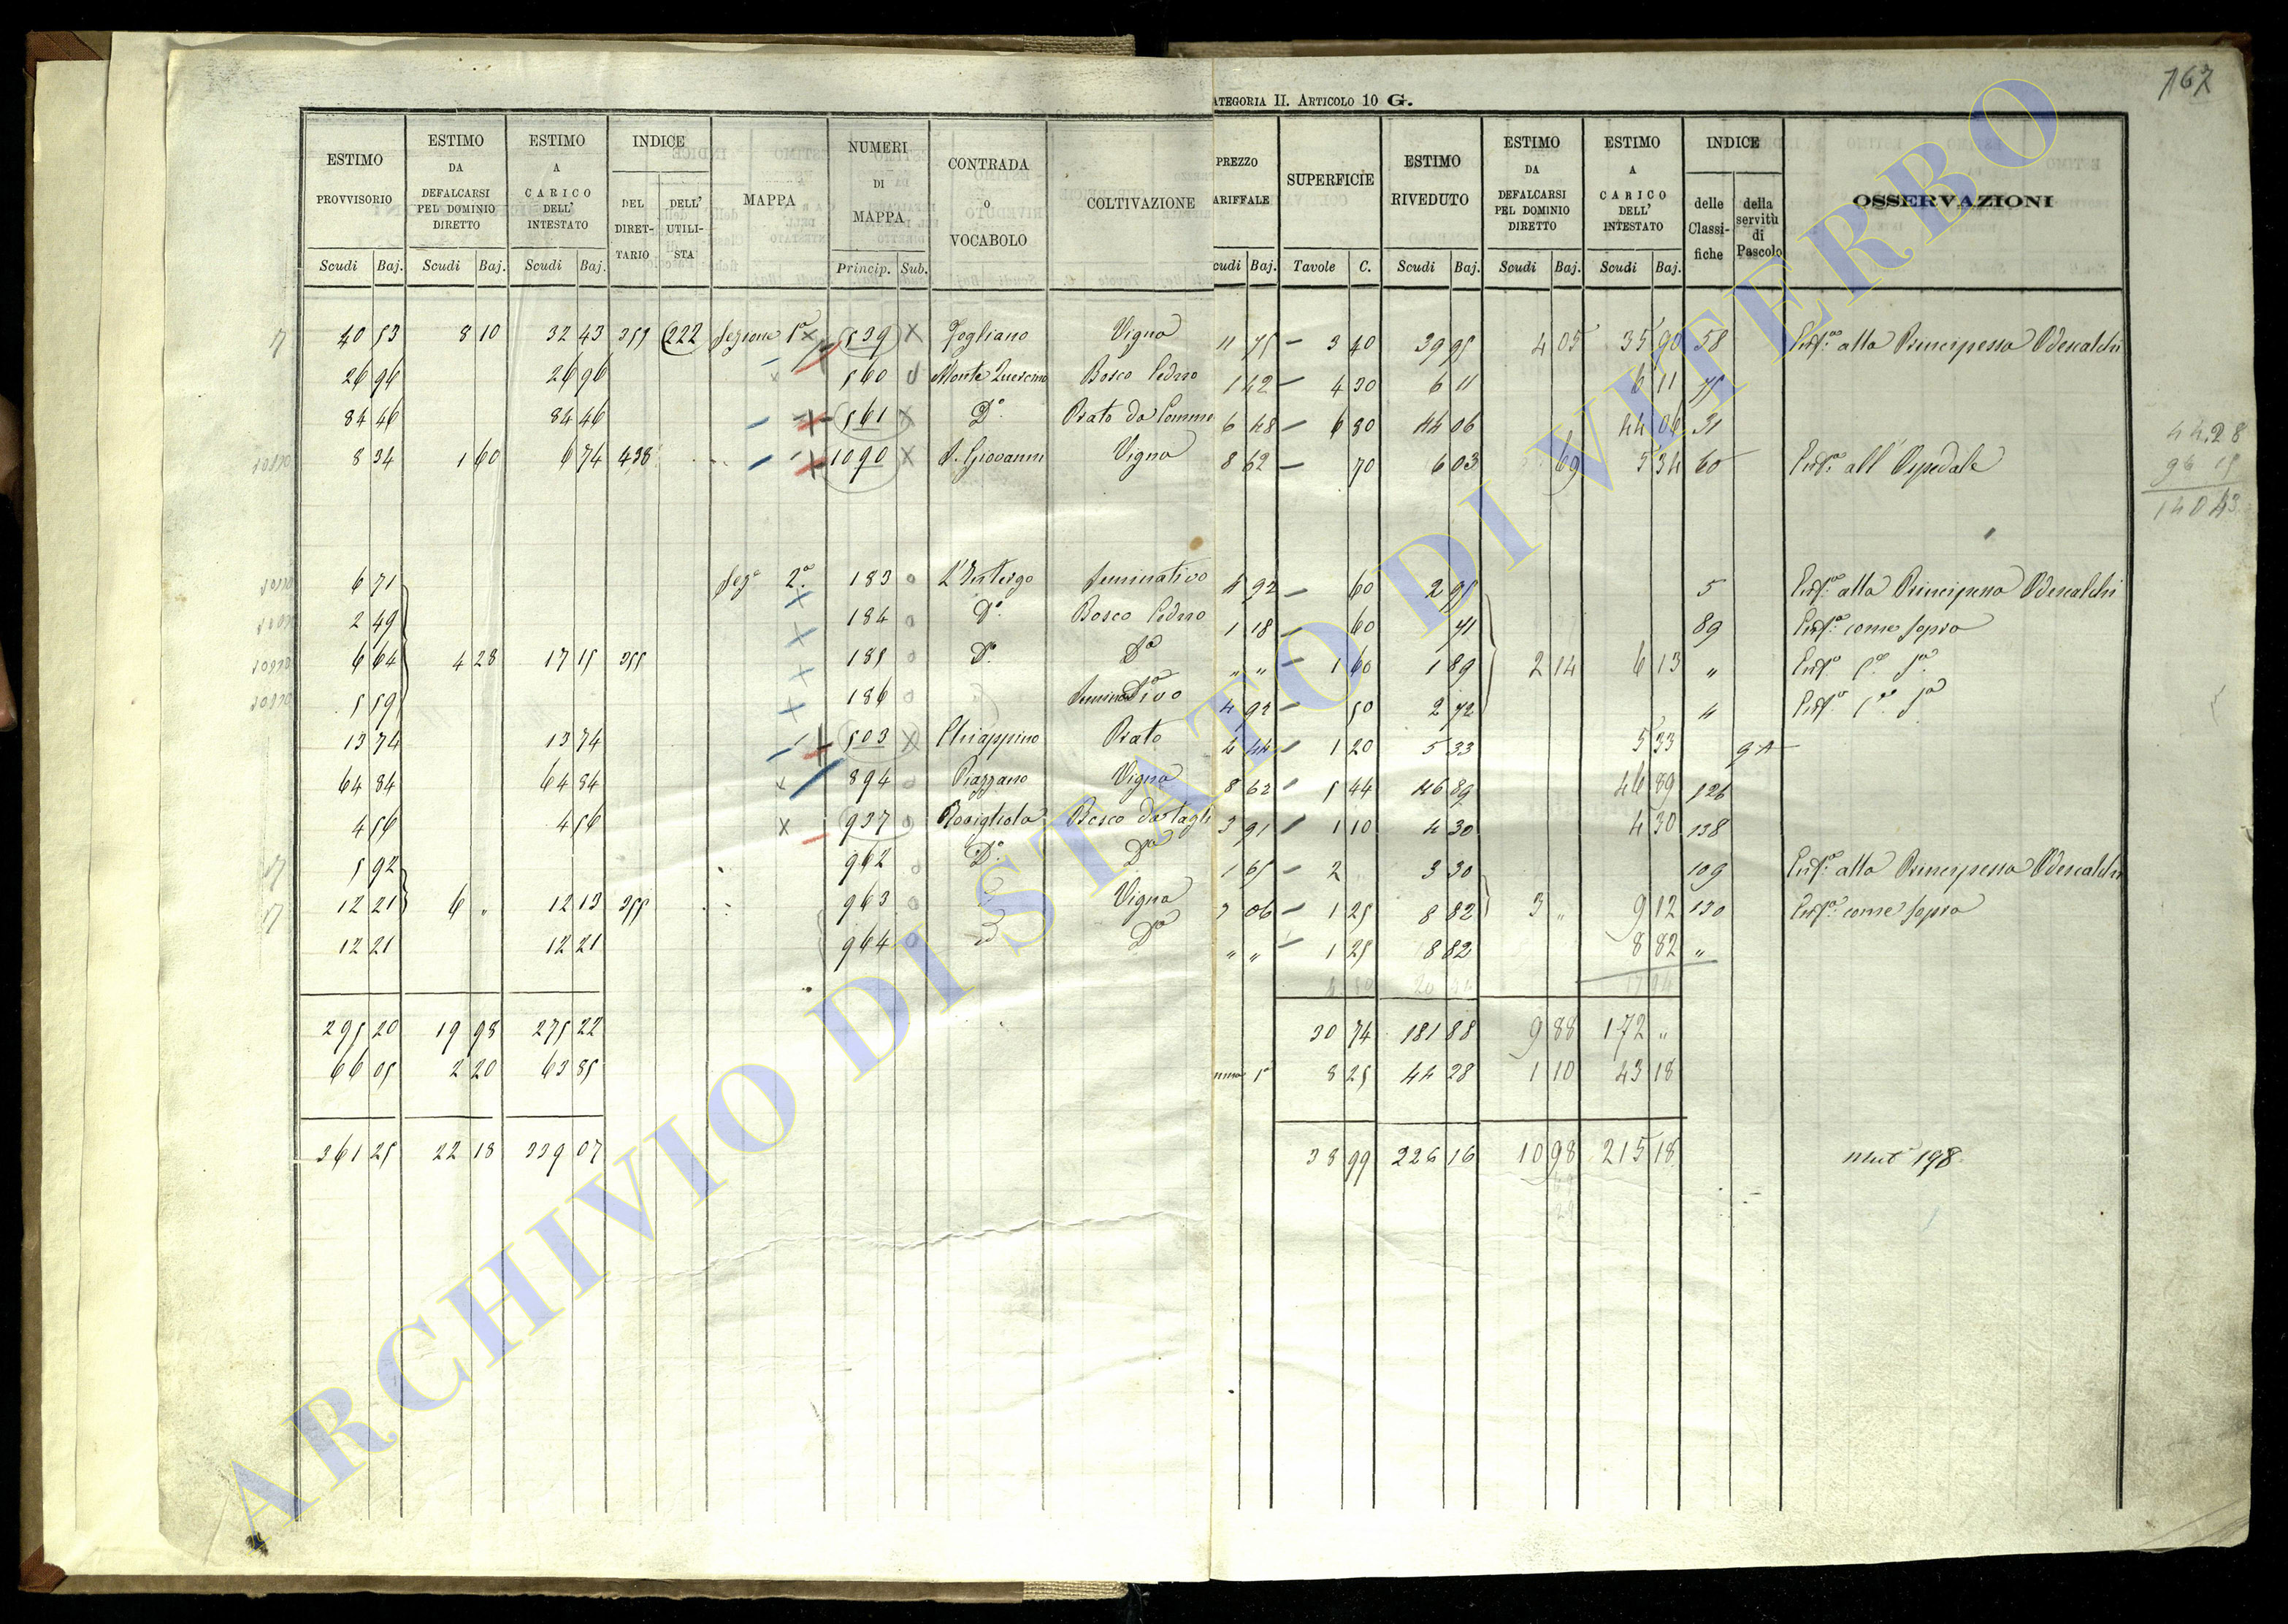 167
ATEGORIA II. ARTICOLO 10 G.
ESTIMO PROVVISORIO | ESTIMO DA DEFALCARSI PEL DOMINIO DIRETTO | ESTIMO A CARICO DELL' INTESTATO | INDICE DEL DIRETTARIO | DELL' UTILISTA | MAPPA | NUMERI DI MAPPA | CONTRADA O VOCABOLO | COLTIVAZIONE | PREZZO ARIFFALE | SUPERFICIE | ESTIMO RIVEDUTO | ESTIMO DA DEFALCARSI PEL DOMINIO DIRETTO | ESTIMO A CARICO DELL' INTESTATO | INDICE delle Classifiche | della servitù di Pascolo | OSSERVAZIONI
Scudi Baj. Scudi Baj. Scudi Baj. Princip. Sub. cudi Baj. Tavole C. Scudi Baj. Scudi Baj. Scudi Baj.
40 53 8 10 32 43 355 222 Sezione 1ª 539 Vigna 11 75 3 40 39 95 4 05 35 90 58 alla Principessa Odescalchi
26 96 26 96 560 Bosco Cedno 1 42 4 30 6 11 6 11 75
84 46 84 46 561 Dº Prato da 6 48 6 80 44 06 44 06 31
8 34 1 60 6 74 438 1090 S. Giovanni Vigna 8 62 70 6 03 69 5 34 60 all' Ospedale
44.28
96 15
140 43
6 71 Sezª 2ª 183 Seminativo 4 92 60 2 95 5 alla Principessa Odescalchi
2 49 184 Dº Bosco Cedno 1 18 60 71 89 come sopra
6 64 4 28 17 15 355 185 Dº Dº " " 1 60 1 89 2 14 6 13 "
5 59 186 Seminativo 4 92 50 2 72 4
13 74 13 74 503 Chiappino Prato 4 44 1 20 5 33 5 33 9 A
64 84 64 84 894 Piazzano Vigna 8 62 5 44 46 89 46 89 126
4 56 4 56 937 Bosco da tagli 3 91 1 10 4 30 4 30 138
5 92 962 Dº Dº 1 65 2 3 30 109 alla Principessa Odescalchi
12 21 6 " 12 13 355 963 Vigna 7 06 1 25 8 82 3 " 9 12 130 come sopra
12 21 12 21 964 Dº " " 1 25 8 82 8 82 "
295 20 19 98 275 22 30 74 181 88 9 88 172 "
66 05 2 20 63 85 8 25 44 28 1 10 43 18
361 25 22 18 339 07 38 99 226 16 10 98 215 18 mut 198
ARCHIVIO DI STATO DI VITERBO